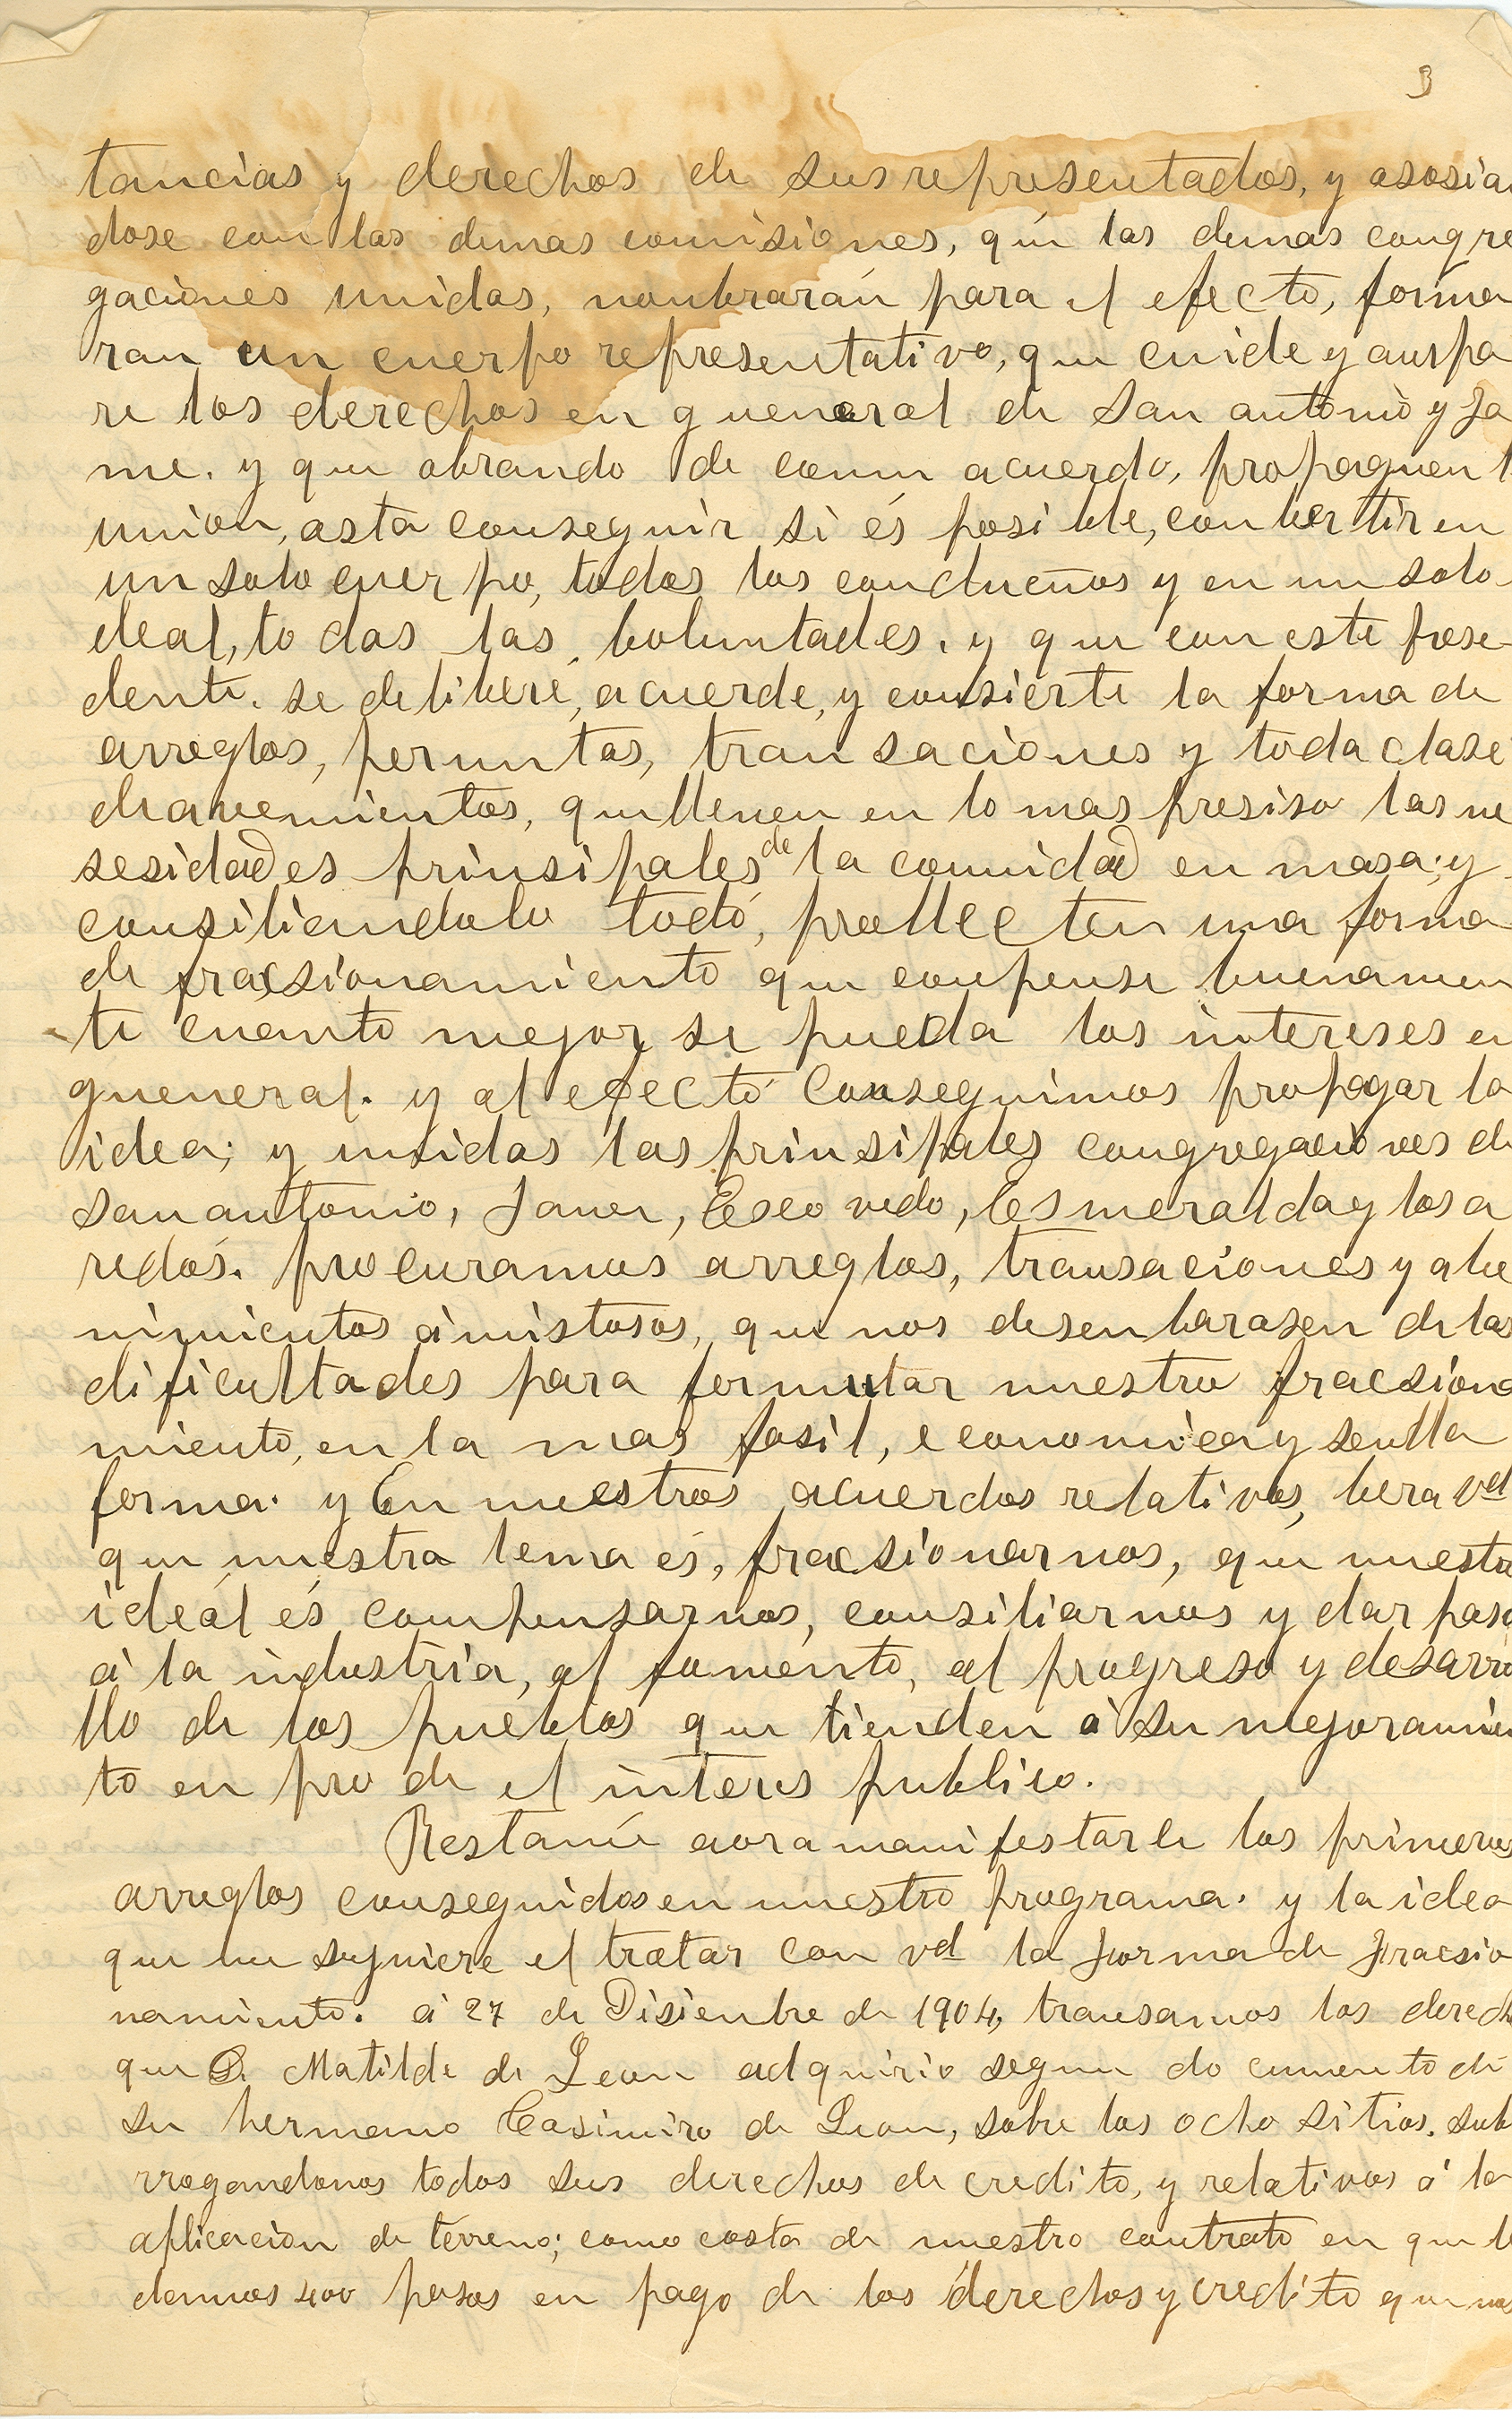 3
tancias y derechos de sus representados, y asosian
dose con las demas comisiones, que las demas congre
gaciones unidas, nonbrarán para el efecto, forma
ran un cuerpo representativo, que cuide y anpa
re los derechos en gueneral de San antonio y Ja
me. y que obrando de comun acuerdo, propaguen l
union, asta conseguir si és posible, conbertir en
un solo cuerpo, todos los condueños y en un solo
ideal, todas las boluntades. y que con este prese
dente. se delibere, acuerde, y consierte la forma de
arreglos, permutas, transaciones y toda clase
de avenimientos, que llenen en lo mas presiso las ne
sesidades prinsipales de la comunidad en masa; y
consiliandolo todo, prollecten una forma
de fracsionamiento que conpense buenamen
te cuanto mejor se pueda los intereses en
gueneral. y al efecto conseguimos propagar la
idea; y unidas las prinsipales congregaciones de
San antonio, Jamer, Escovedo, Esmeralda y los a
redos. procuramos arreglos, transaciones y abe
nimientos amistosos, que nos desenbarasen de las
dificultades para formular nuestro fracsiona
miento, en la mas fasil, economica y senlla
forma. y En nuestros acuerdos relativos, bera vd
que nuestra lema és, fracsionarnos, que nuestro
ideál és compensarnos, consiliarnos y dar paso
á la industria, al fomento, al progreso y desarro
llo de los pueblos que tienden á su mejoramien
to en pro de el interes publico.
Restame aora manifestarle los primeros
arreglos conseguidos en nuestro programa. y la idea
que me sujiere el tratar con vd la forma de fracsio
namiento. á 27 de Disienbre de 1904, transamos los derech
que D. Matilde de Leon adquirio segun documento de
su hermano Casimiro de Leon, sobre los ocho sitios. sub
rrogandonos todos sus derechos de credito, y relativos á la
aplicacion de terreno; como costa de nuestro contrato en que le
damos 400 pesos en pago de los derechos y credito que nos